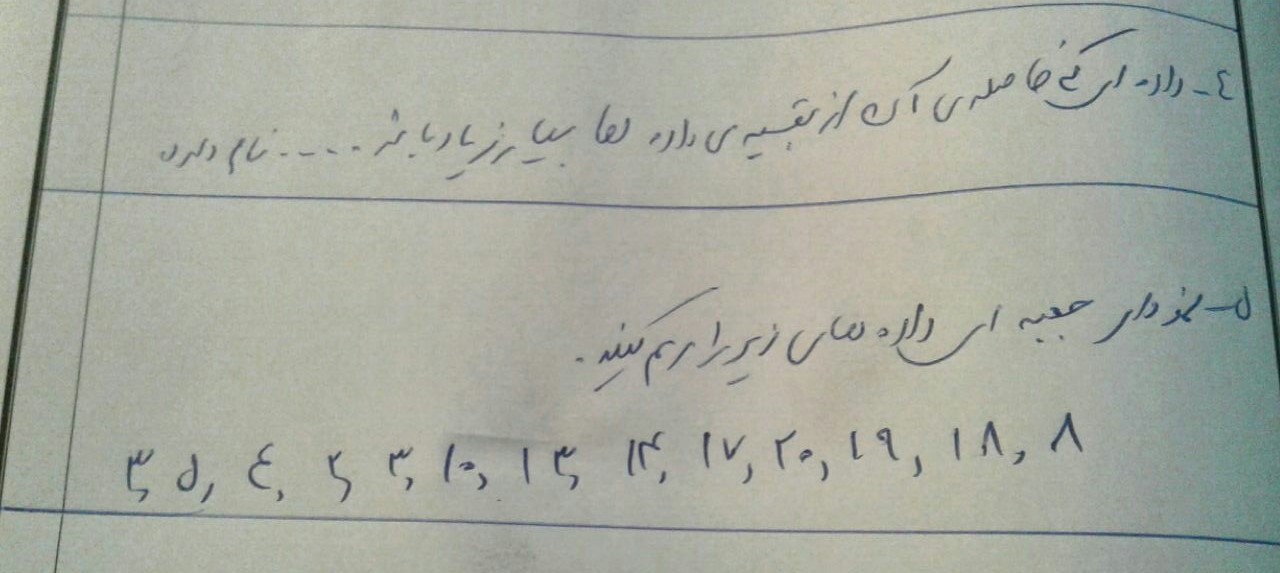 ٤- داده ای که فاصله ی آن از بقیه ی داده ها بسیار زیاد باشد .... نام دارد
۵- نمودار جعبه ای داده های زیر را رسم کنید.
۳, ۵, ٤, ۲, ۳, ۱۰, ۱۳, ۱۴, ۱۷, ۲۰, ۱۹, ۱۸, ۸